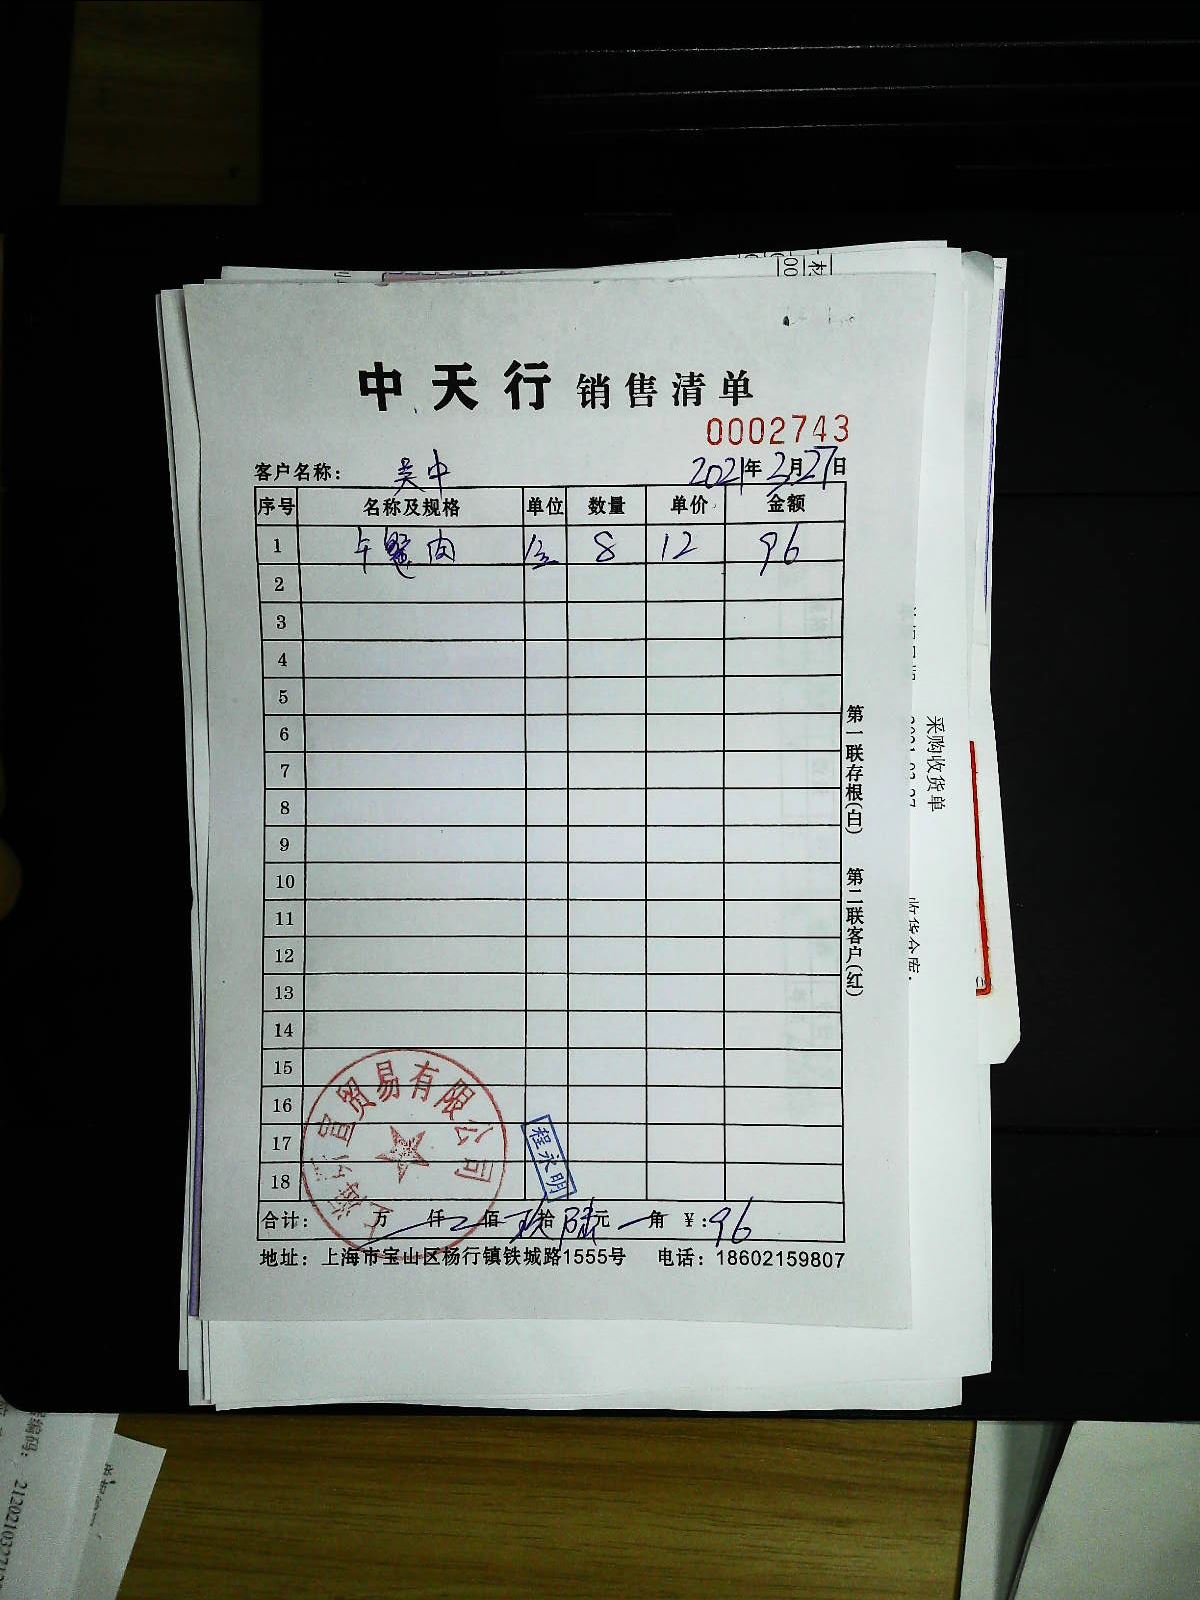 中天行 销售清单
0002743
客户名称： 吴中 2021年3月27日
序号 名称及规格 单位 数量 单价 金额
1 卡蟹肉 盒 8 12 96
2
3
4
5
6
7
8
9
10
11
12
13
14
15
16
17
18
贸易有限公司
程永明
合计： 万 仟 佰 玖拾陆元 角 ￥:96
地址：上海市宝山区杨行镇铁城路1555号 电话：18602159807
第一联存根(白) 第二联客户(红)
采购收货单